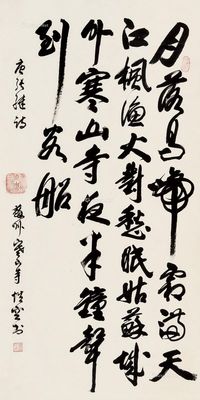 月落烏啼霜滿天
江楓漁火對愁眠姑蘇城
外寒山寺夜半鐘聲
到客船
唐張繼詩
蘇州寒山寺性空書